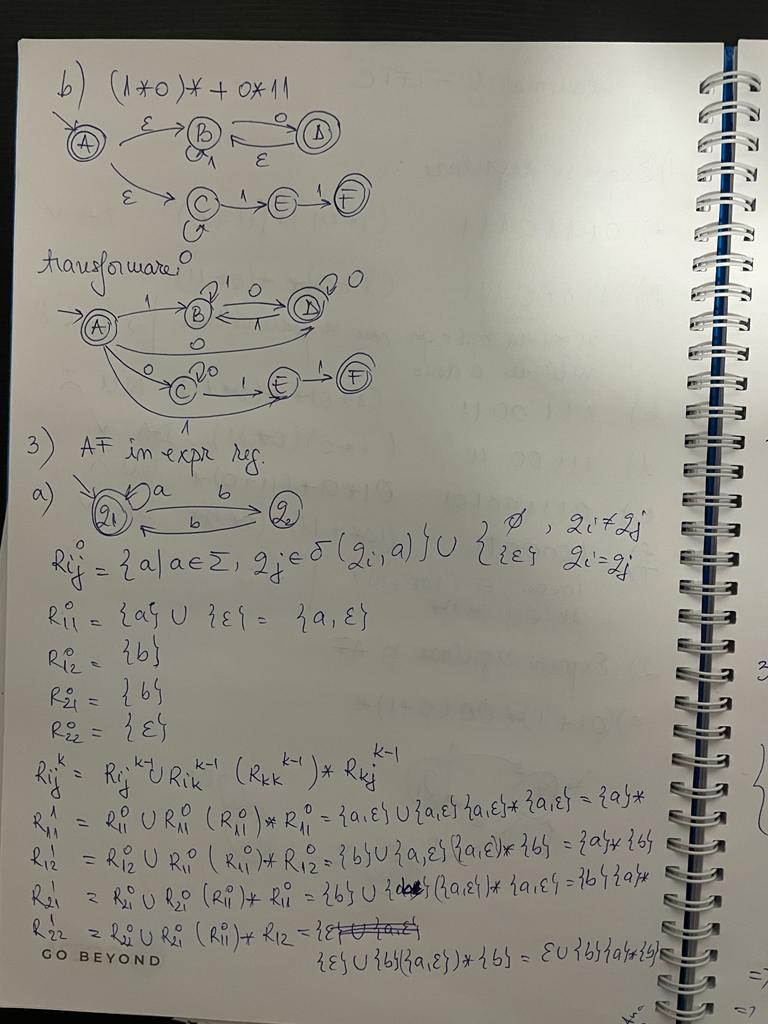 b) (1*0)* + 0*11
A ε B 0 D
1 ε
ε C 1 E 1 F
0
transformare
A 1 B 1 0 D 0
1
0
0 C 0 1 E 1 F
1
3) AF in expr reg.
a) q₁ a b q₂
b
Rij⁰ = {a | a ∈ Σ, qj ∈ δ(qi, a)} ∪ { ∅, qi ≠ qj
{ε} qi = qj
R₁₁⁰ = {a} ∪ {ε} = {a, ε}
R₁₂⁰ = {b}
R₂₁⁰ = {b}
R₂₂⁰ = {ε}
Rijᵏ = Rijᵏ⁻¹ ∪ Rikᵏ⁻¹ (Rkkᵏ⁻¹)* Rkjᵏ⁻¹
R₁₁¹ = R₁₁⁰ ∪ R₁₁⁰ (R₁₁⁰)* R₁₁⁰ = {a, ε} ∪ {a, ε} {a, ε}* {a, ε} = {a}*
R₁₂¹ = R₁₂⁰ ∪ R₁₁⁰ (R₁₁⁰)* R₁₂⁰ = {b} ∪ {a, ε} ({a, ε})* {b} = {a}* {b}
R₂₁¹ = R₂₁⁰ ∪ R₂₁⁰ (R₁₁⁰)* R₁₁⁰ = {b} ∪ { } ({a, ε})* {a, ε} = {b} {a}*
R₂₂¹ = R₂₂⁰ ∪ R₂₁⁰ (R₁₁⁰)* R₁₂ = {ε} ∪ {a, ε}
{ε} ∪ {b} ({a, ε})* {b} = ε ∪ {b} {a}* {b}
GO BEYOND